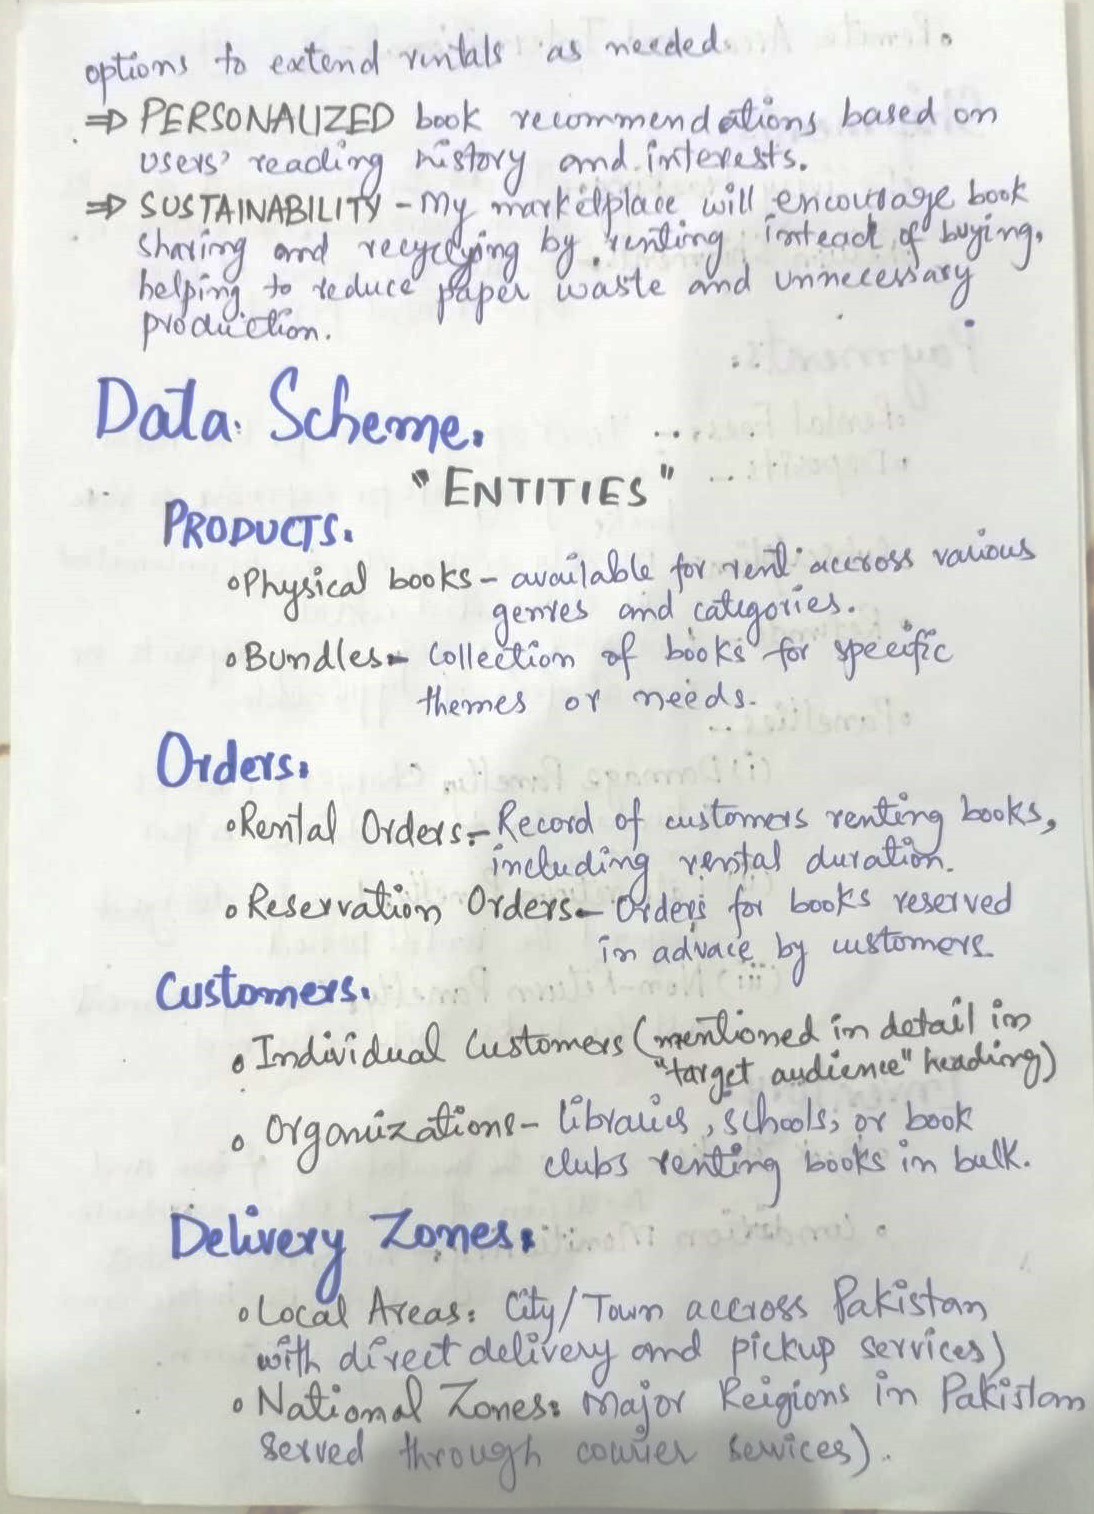 options to extend rentals as needed.
⇒ PERSONALIZED book recommendations based on
users' reading history and interests.
⇒ SUSTAINABILITY - My marketplace will encourage book
sharing and recyclying by renting intead of buying,
helping to reduce paper waste and unnecessary
production.
Data Scheme.
"ENTITIES"
PRODUCTS.
Physical books - available for rent accross various
genres and categories.
Bundles - Collection of books for specific
themes or needs.
Orders.
Rental Orders - Record of customers renting books,
including rental duration.
Reservation Orders - Orders for books reserved
in advace by customers.
Customers.
Individual Customers (mentioned in detail in
"target audience" heading)
Organizations - libraries, schools, or book
clubs renting books in bulk.
Delivery Zones:
Local Areas: City/Town accross Pakistan
with direct delivery and pickup services)
National Zones: Major Reigions in Pakistan
served through courier services).